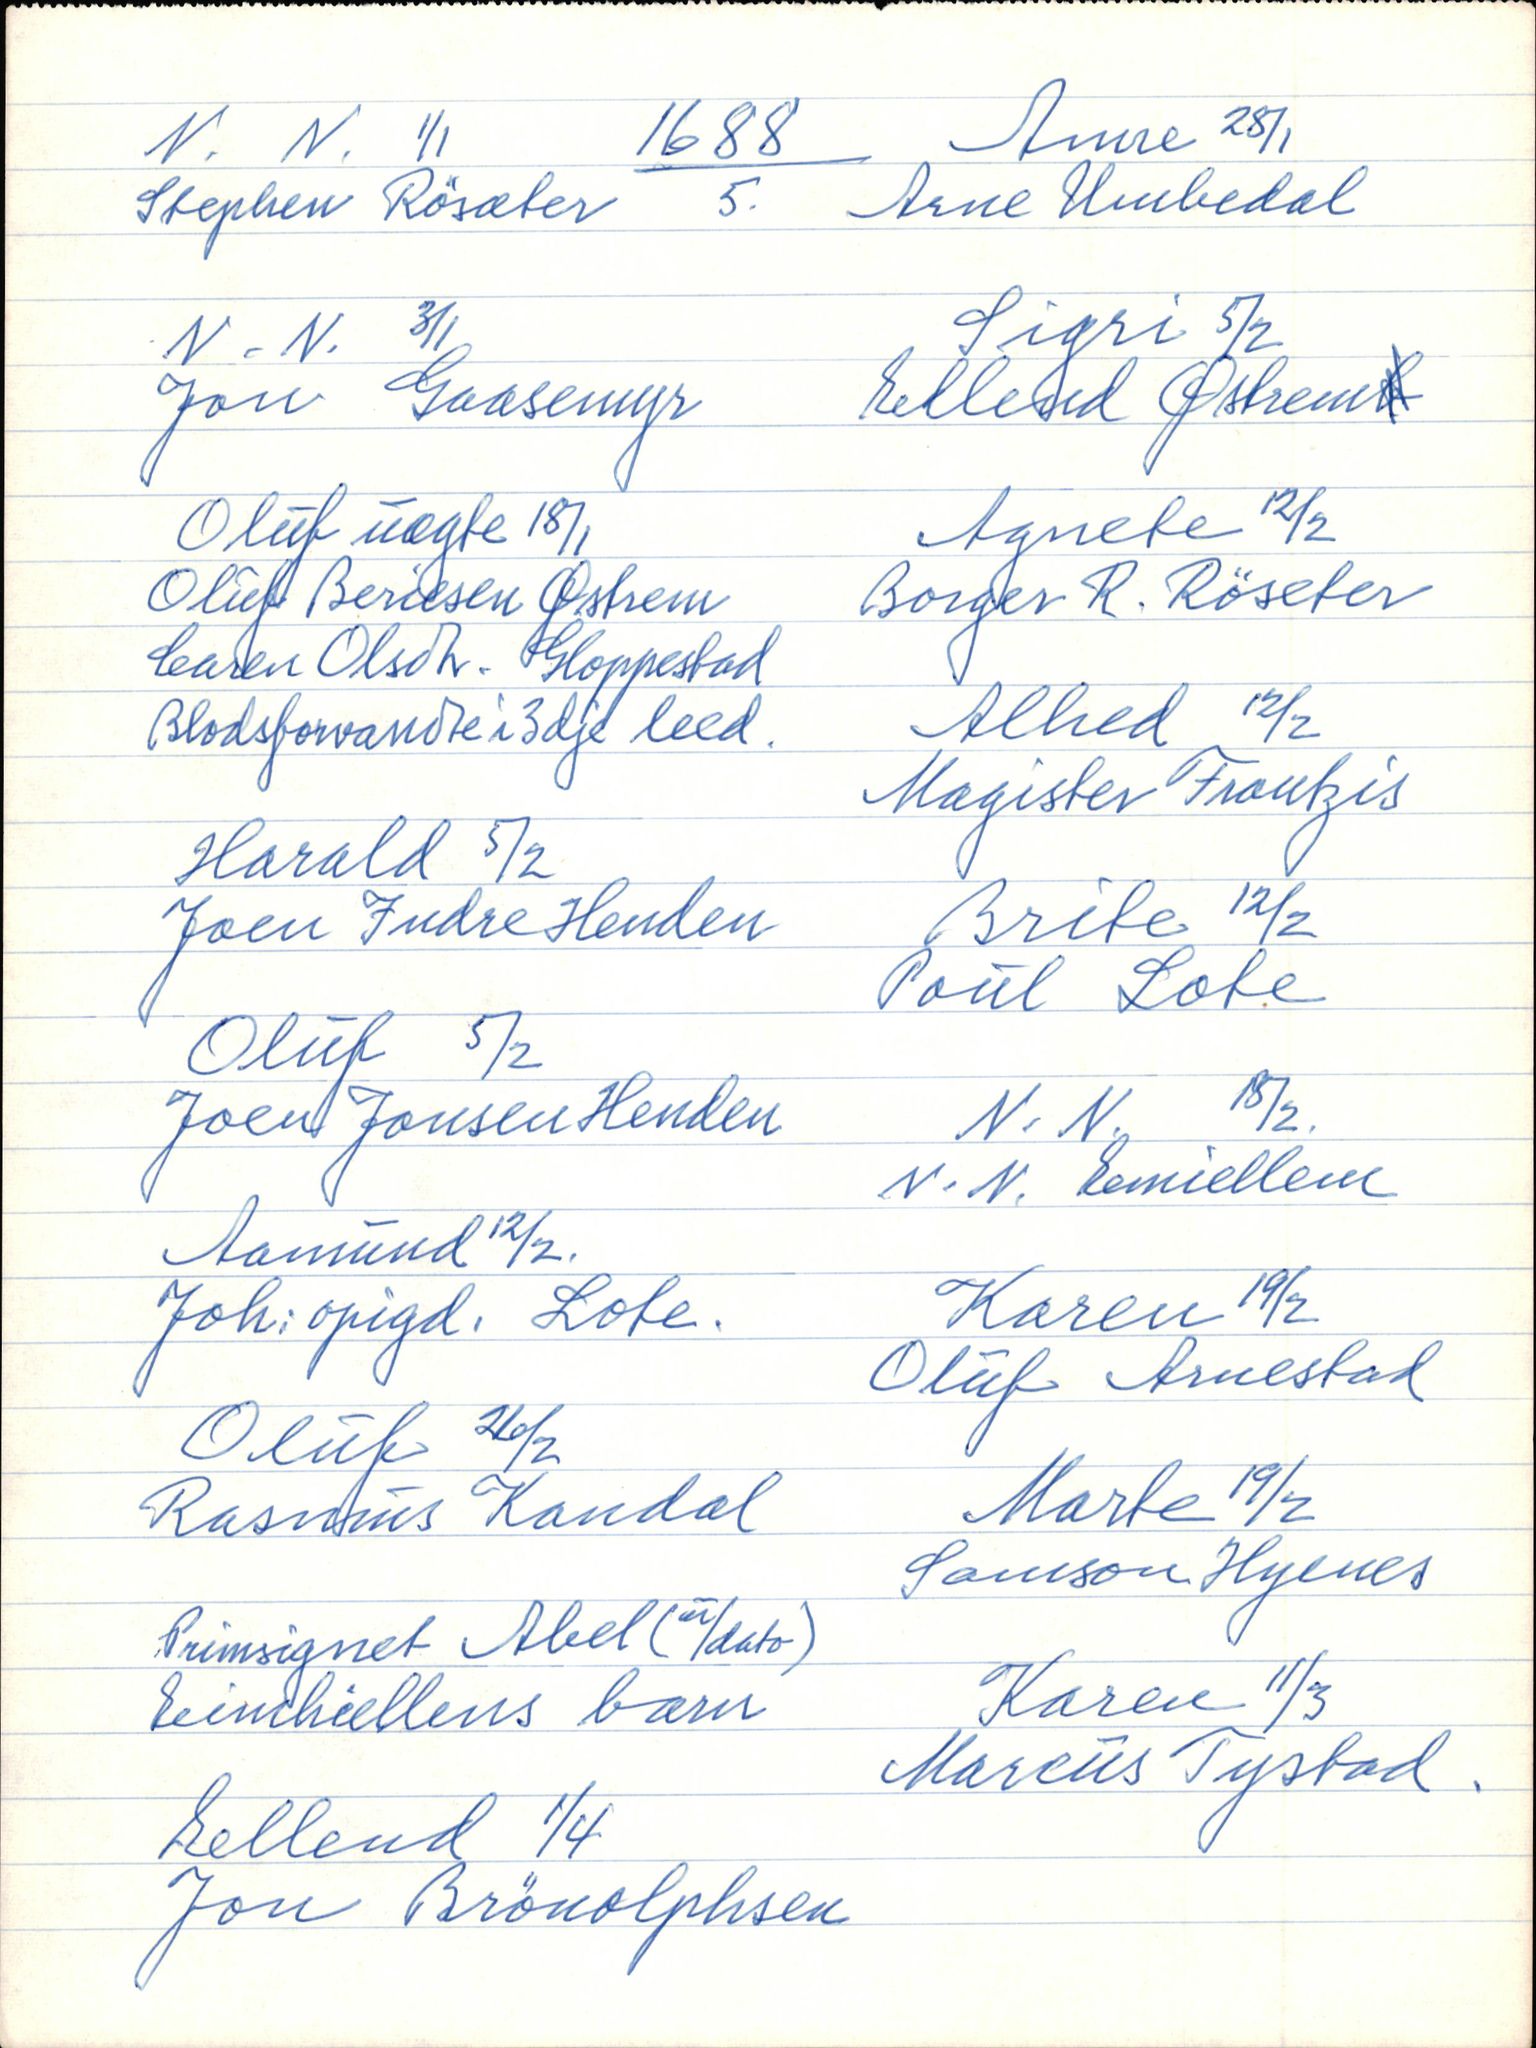 1688
5.
N. N. 1/1
Stephen Rösæter
N. N. 3/1
Jon Gaasemyr
Olūf ūægte 18/1
Olūf Beriesen Østrem
Caren Olsdtr. Gloppestad
Blodsforvandte i 3dje leed.
Harald 5/2
Joen Indre Henden
Olūf 5/2
Joen Jonsen Henden
Aamūnd 12/2.
Joh: opigd. Lote.
Olūf 26/2
Rasmūs Kandal
Primsignet Abel (ū/dato)
Eimhiellens barn
Eellend 1/4
Jon Brönolphsen
Anne 28/1
Arne Umbedal
Sigri 5/2
Eellend Østrem
Agnete 12/2
Borger R. Röseter
Alhed 12/2
Magister Frantzis
Brite 12/2
Poūl Lote
N. N. 18/2.
N. N. Eemiellem
Karen 19/2
Olūf Arnestad
Marte 19/2
Samson Hyenes
Karen 11/3
Marcūs Tystad.